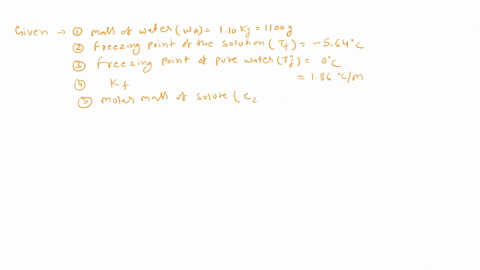 Given → ① Mass of water (WA) = 1.10 Kg = 1100 g
② Freezing point of the solution (Tf) = -5.64°C
③ Freezing point of pure water (Tf°) = 0°C
④ Kf = 1.86 °C/m
⑤ molar mass of solute ( C2